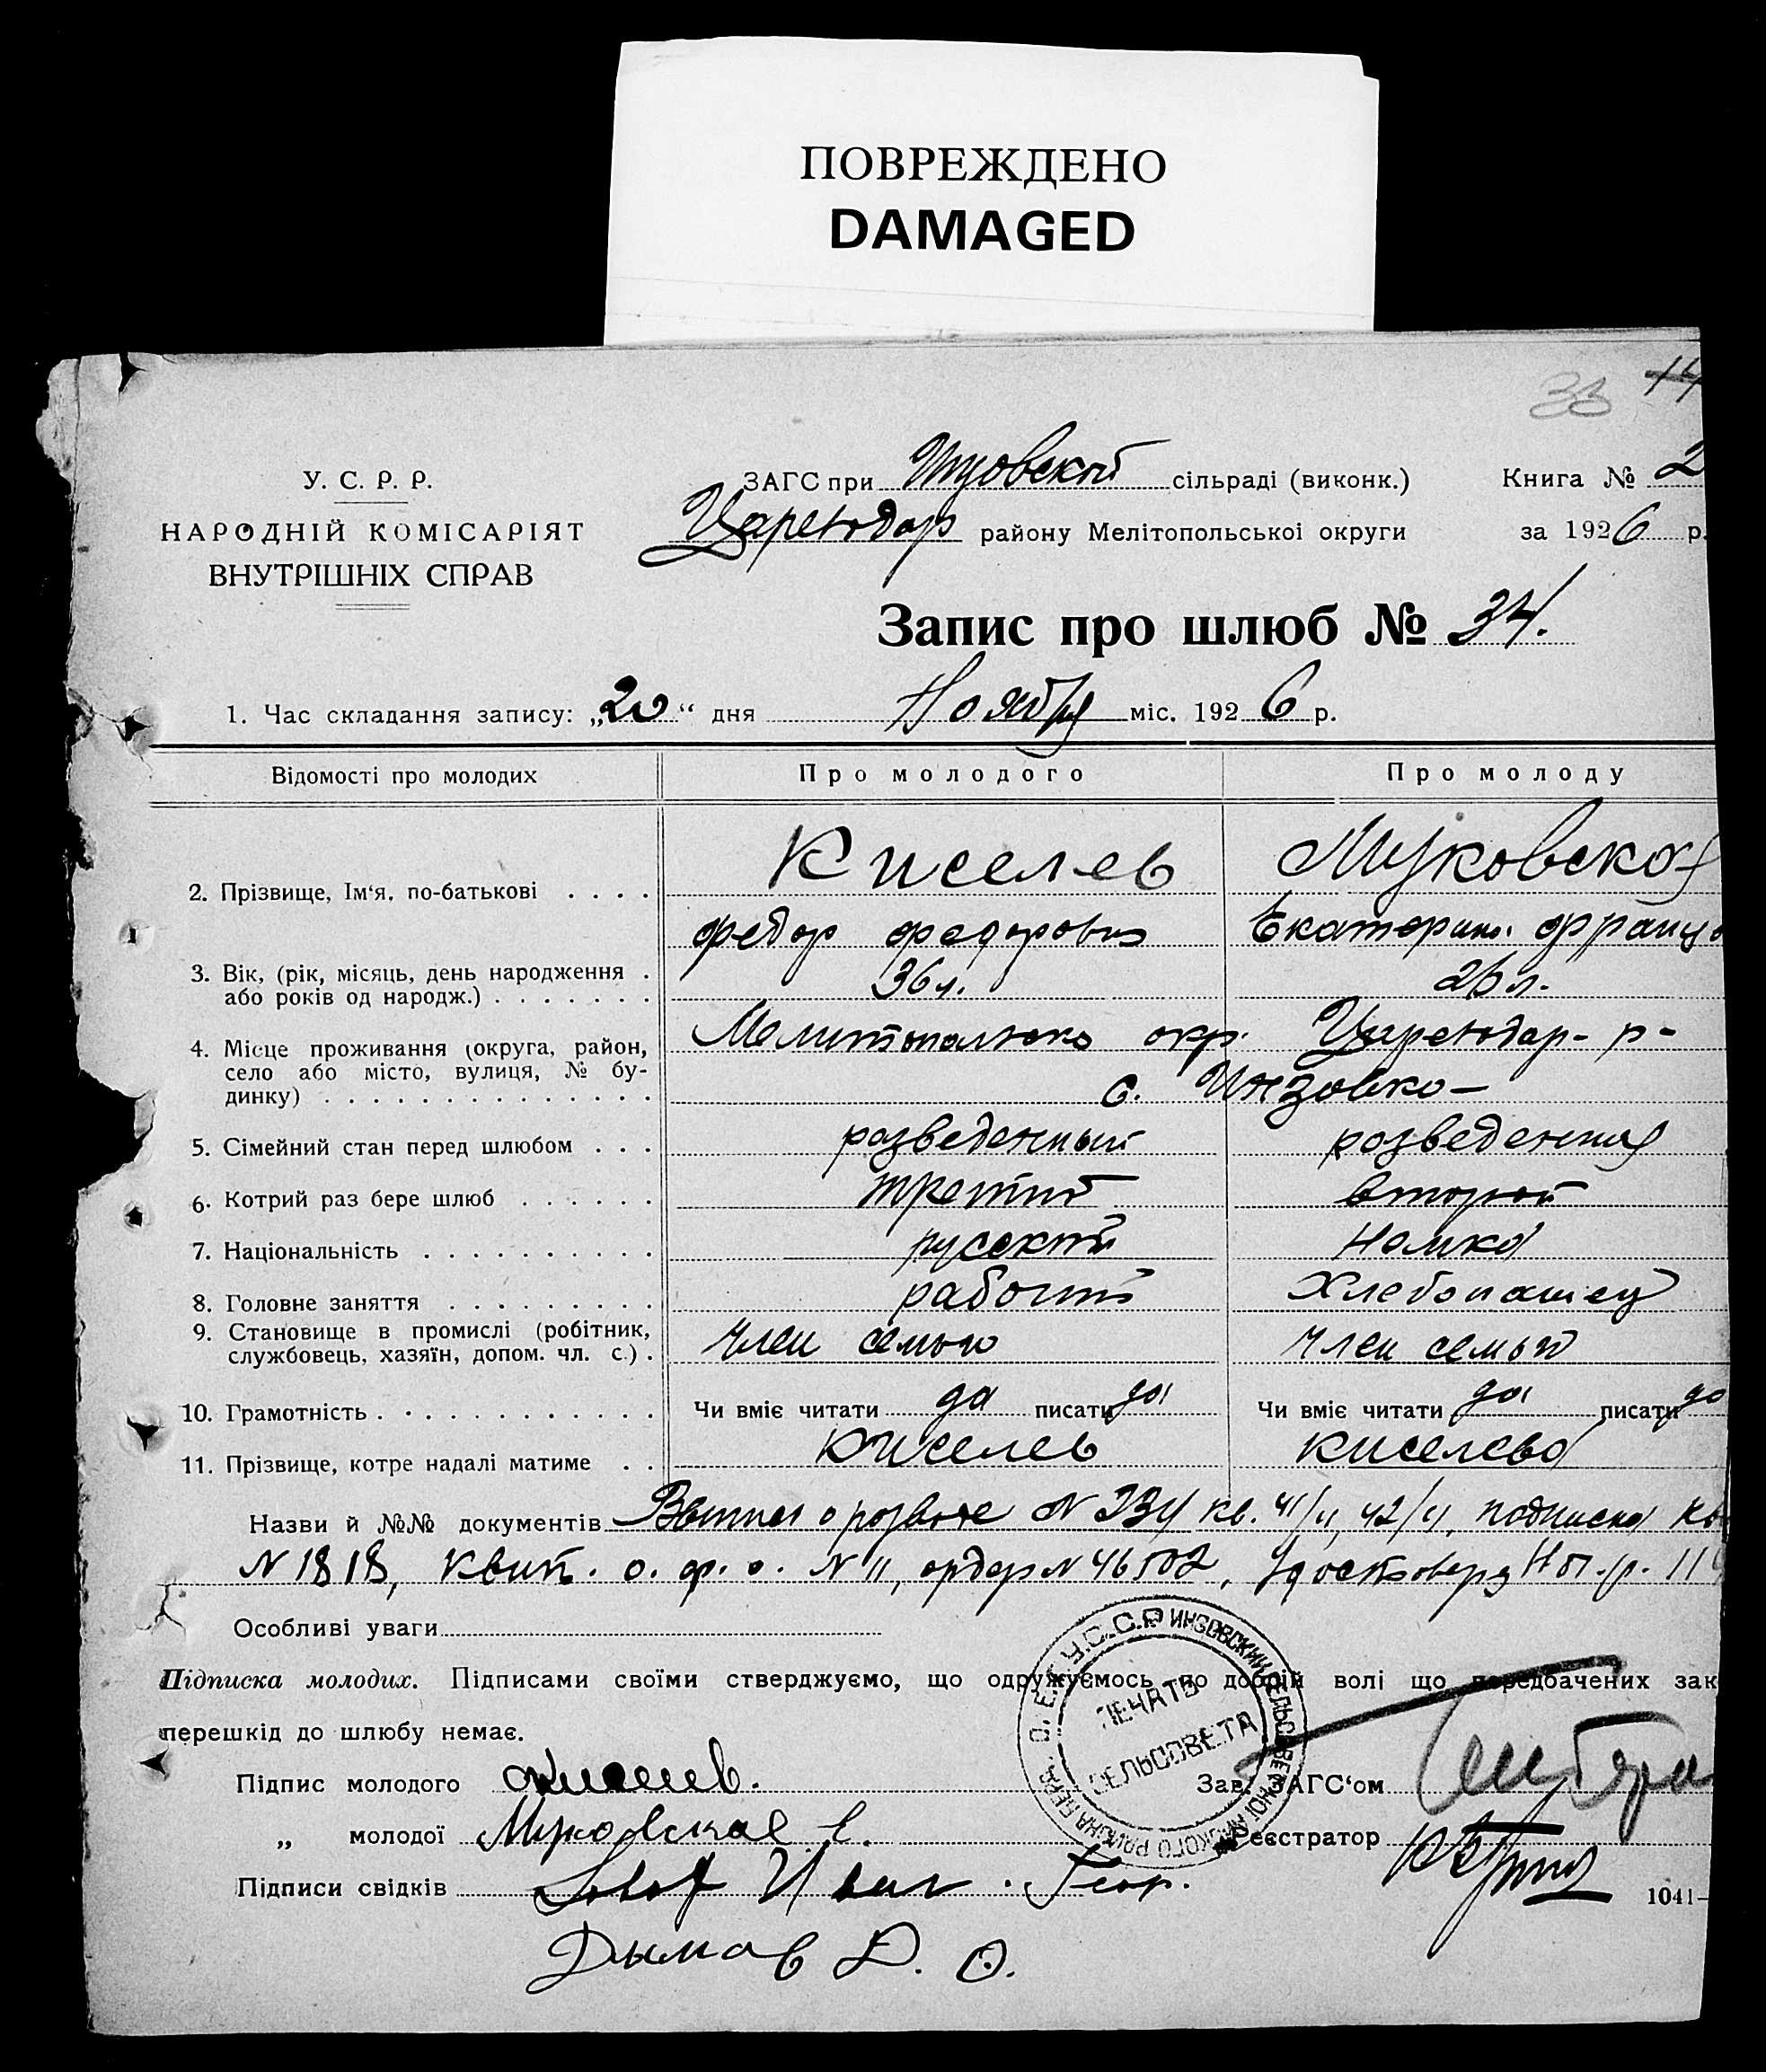 ПОВРЕЖДЕНО
DAMAGED
33 14
У. С. Р. Р.
НАРОДНІЙ КОМІСАРІЯТ
ВНУТРІШНІХ СПРАВ
ЗАГС при сільраді (виконк.)
Книга № 2
району Мелітопольськоі округи
за 1926 р.
Запис про шлюб № 34.
1. Час складання запису: „20“ дня Ноября міс. 1926 р.
Відомості про молодих Про молодого Про молоду
2. Прізвище, Ім‘я, по-батькові . . . . Киселев
Федор Федорович Екатерина
3. Вік, (рік, місяць, день народження . 36 л. 26 л.
або років од народж.) . . . . . . .
4. Місце проживання (округа, район, Мелитопольско окр. р-
село або місто, вулиця, № бу- с. Инзовко-
динку) . . . . . . . . . . . . . .
5. Сімейний стан перед шлюбом . . . разведенный розведенная
6. Котрий раз бере шлюб . . . . . . третий второй
7. Національність . . . . . . . . . . русский немка
8. Головне заняття . . . . . . . . . рабочий Хлебопашец
9. Становище в промислі (робітник, член семьи член семьи
службовець, хазяїн, допом. чл. с.) .
10. Грамотність . . . . . . . . . . . . Чи вміє читати да писати да Чи вміє читати да писати да
11. Прізвище, котре надалі матиме . . Киселев Киселева
Назви й №№ документів о розводе N 234 кв. 41/4, 42/4, подписка
N 1818, Квит. о. ф. о. N 11, ордер N 46502,
Особливі уваги
Підписка молодих. Підписами своїми стверджуємо, що одружуємось по добрій волі що передбачених зак
перешкід до шлюбу немає.
У.С.С.Р ИНЗОВСКИЙ
ПЕЧАТЬ
СЕЛЬСОВЕТА
Підпис молодого Киселев.
Зав. ЗАГС‘ом
„ молодої Е.
Реєстратор
Підписи свідків Иван. Геор.
1041-
Дымов Д. О.